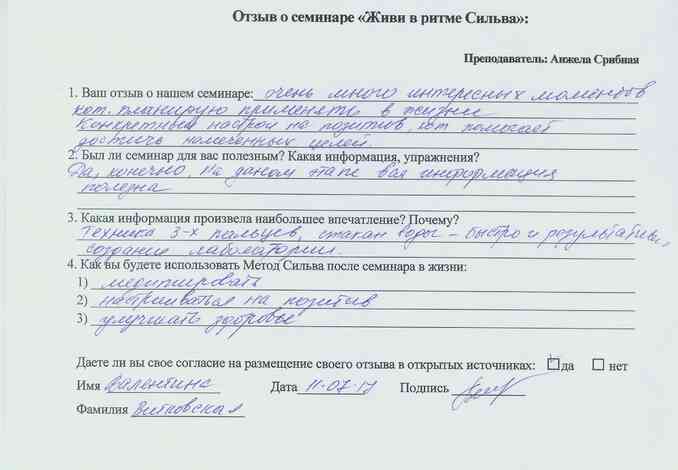 Отзыв о семинаре «Живи в ритме Сильва»:
Преподаватель: Анжела Срибная
1. Ваш отзыв о нашем семинаре: очень много интересных моментов
кот. планирую применять в жизни
Конкретный настрой на позитив, кот помогает
достичь намеченных целей.
2. Был ли семинар для вас полезным? Какая информация, упражнения?
Да, конечно, На даном этапе вся информация
полезна
3. Какая информация произвела наибольшее впечатление? Почему?
Техника 3-х пальцев, стакан воды – быстро и результативн,
создание лаборатории.
4. Как вы будете использовать Метод Сильва после семинара в жизни:
1) медитировать
2) настраиваться на позитив
3) улучшать здоровье
Даете ли вы свое согласие на размещение своего отзыва в открытых источниках: да нет
Имя Валентина Дата 11-07-17 Подпись
Фамилия Витковская